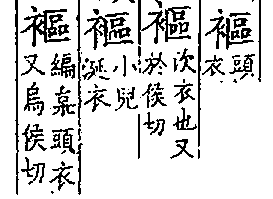 褔頭衣
褔次衣也又於侯切
褔小兒涎衣
褔編枲頭衣又烏侯切